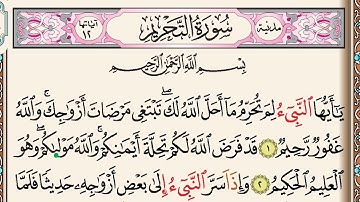 مدنية سورة التحريم آياتها ١٢
بِسْمِ اللَّهِ الرَّحْمَٰنِ الرَّحِيمِ
يَٰٓأَيُّهَا النَّبِىٓءُ لِمَ تُحَرِّمُ مَآ أَحَلَّ اللَّهُ لَكَ تَبْتَغِى مَرْضَاتَ أَزْوَٰجِكَ وَاللَّهُ
غَفُورٌ رَّحِيمٌ ١ قَدْ فَرَضَ اللَّهُ لَكُمْ تَحِلَّةَ أَيْمَٰنِكُمْ وَاللَّهُ مَوْلَىٰكُمْ وَهُوَ
الْعَلِيمُ الْحَكِيمُ ٢ وَإِذْ أَسَرَّ النَّبِىٓءُ إِلَىٰ بَعْضِ أَزْوَٰجِهِ حَدِيثًا فَلَمَّا